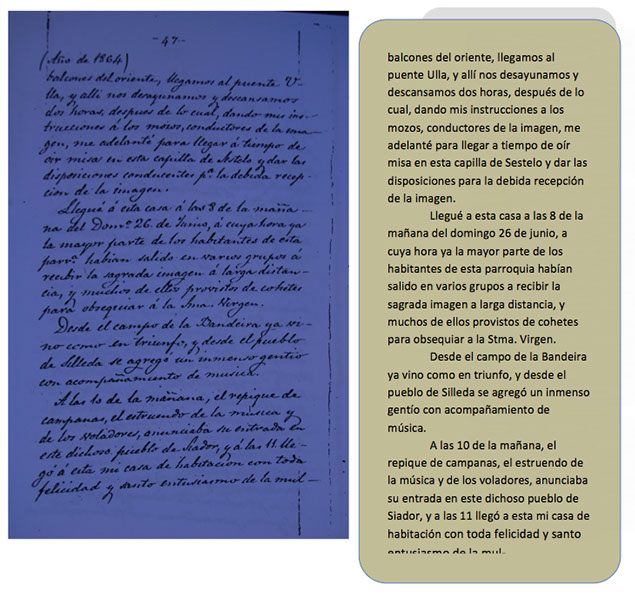 -47-
(Año de 1864)
balcones del oriente, llegamos al puente U-
lla, y allí nos desayunamos y descansamos
dos horas, despues de lo cual, dando mis ins-
trucciones á los mozos, conductores de la ima-
gen, me adelanté para llegar á tiempo de
oir misa en esta capilla de Sestelo y dar las
disposiciones conducentes pª la debida recep-
cion de la imagen.
Llegué á esta casa á las 8 de la maña-
na del Domº 26 de Junio, á cuya hora ya
la mayor parte de los habitantes de esta
parrª habian salido en varios grupos á
recibir la sagrada imagen á larga distan-
cia, y muchos de ellos provistos de cohetes
para obsequiar á la Sma. Virgen.
Desde el campo de la Bandeira ya vi-
no como en triunfo, y desde el pueblo
de Silleda se agregó un inmenso gentio
con acompañamiento de musica.
A las 10 de la mañana, el repique de
campanas, el estruendo de la música y
de los voladores, anunciaba su entrada en
este dichoso pueblo de Siador, y á las 11 lle-
gó á esta mi casa de habitacion con toda
felicidad y santo entusiasmo de la mul-
balcones del oriente, llegamos al
puente Ulla, y allí nos desayunamos y
descansamos dos horas, después de lo
cual, dando mis instrucciones a los
mozos, conductores de la imagen, me
adelanté para llegar a tiempo de oír
misa en esta capilla de Sestelo y dar las
disposiciones para la debida recepción
de la imagen.
Llegué a esta casa a las 8 de la
mañana del domingo 26 de junio, a
cuya hora ya la mayor parte de los
habitantes de esta parroquia habían
salido en varios grupos a recibir la
sagrada imagen a larga distancia, y
muchos de ellos provistos de cohetes
para obsequiar a la Stma. Virgen.
Desde el campo de la Bandeira
ya vino como en triunfo, y desde el
pueblo de Silleda se agregó un inmenso
gentío con acompañamiento de
música.
A las 10 de la mañana, el
repique de campanas, el estruendo de
la música y de los voladores, anunciaba
su entrada en este dichoso pueblo de
Siador, y a las 11 llegó a esta mi casa de
habitación con toda felicidad y santo
entusiasmo de la mul-